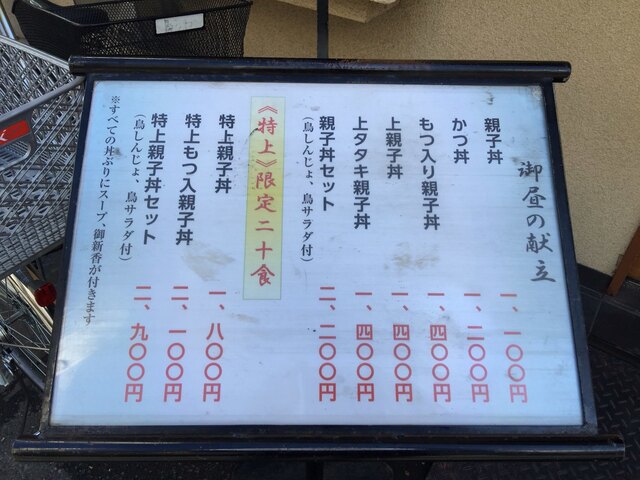 御昼の献立
親子丼 一、一〇〇円
かつ丼 一、二〇〇円
もつ入り親子丼 一、四〇〇円
上親子丼 一、四〇〇円
上タタキ親子丼 一、四〇〇円
親子丼セット 二、二〇〇円
（鳥しんじょ、鳥サラダ付）
《特上》限定二十食
特上親子丼 一、八〇〇円
特上もつ入親子丼 二、一〇〇円
特上親子丼セット 二、九〇〇円
（鳥しんじょ、鳥サラダ付）
※すべての丼ぶりにスープ、御新香が付きます